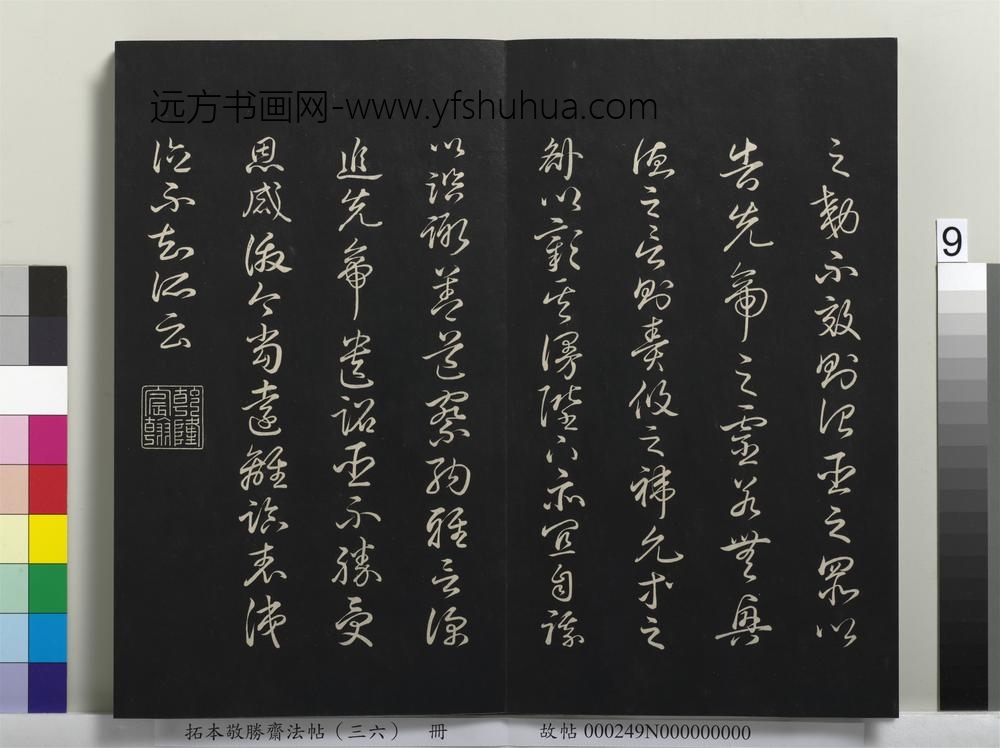 远方书画网-www.yfshuhua.com
之効不效則治臣之罪以
告先帝之靈若無興
德之言則責攸之禕允等之
咎以彰其慢陛下亦宜自謀
以諮諏善道察納雅言深
追先帝遺詔臣不勝受
恩感激今當遠離臨表涕
泣不知所云
乾隆宸翰
9
拓本敬勝齋法帖（三六） 冊 故帖 000249N000000000